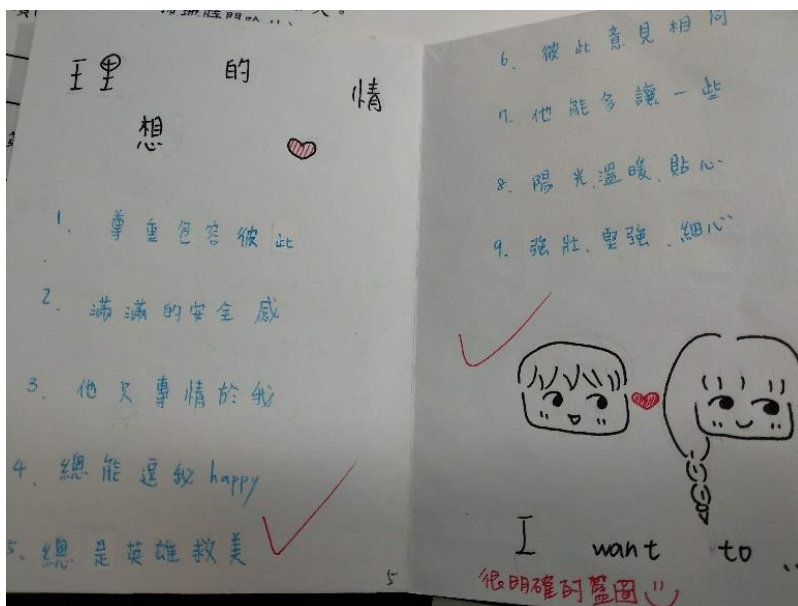 理 的 情
想
1. 尊重包容彼此
2. 滿滿的安全感
3. 他只專情於我
4. 總能逗我 happy
5. 總是英雄救美
5
6. 彼此意見相同
7. 他能多讓一些
8. 陽光、溫暖、貼心
9. 強壯、堅強、細心
I want to ..
很明確的藍圖